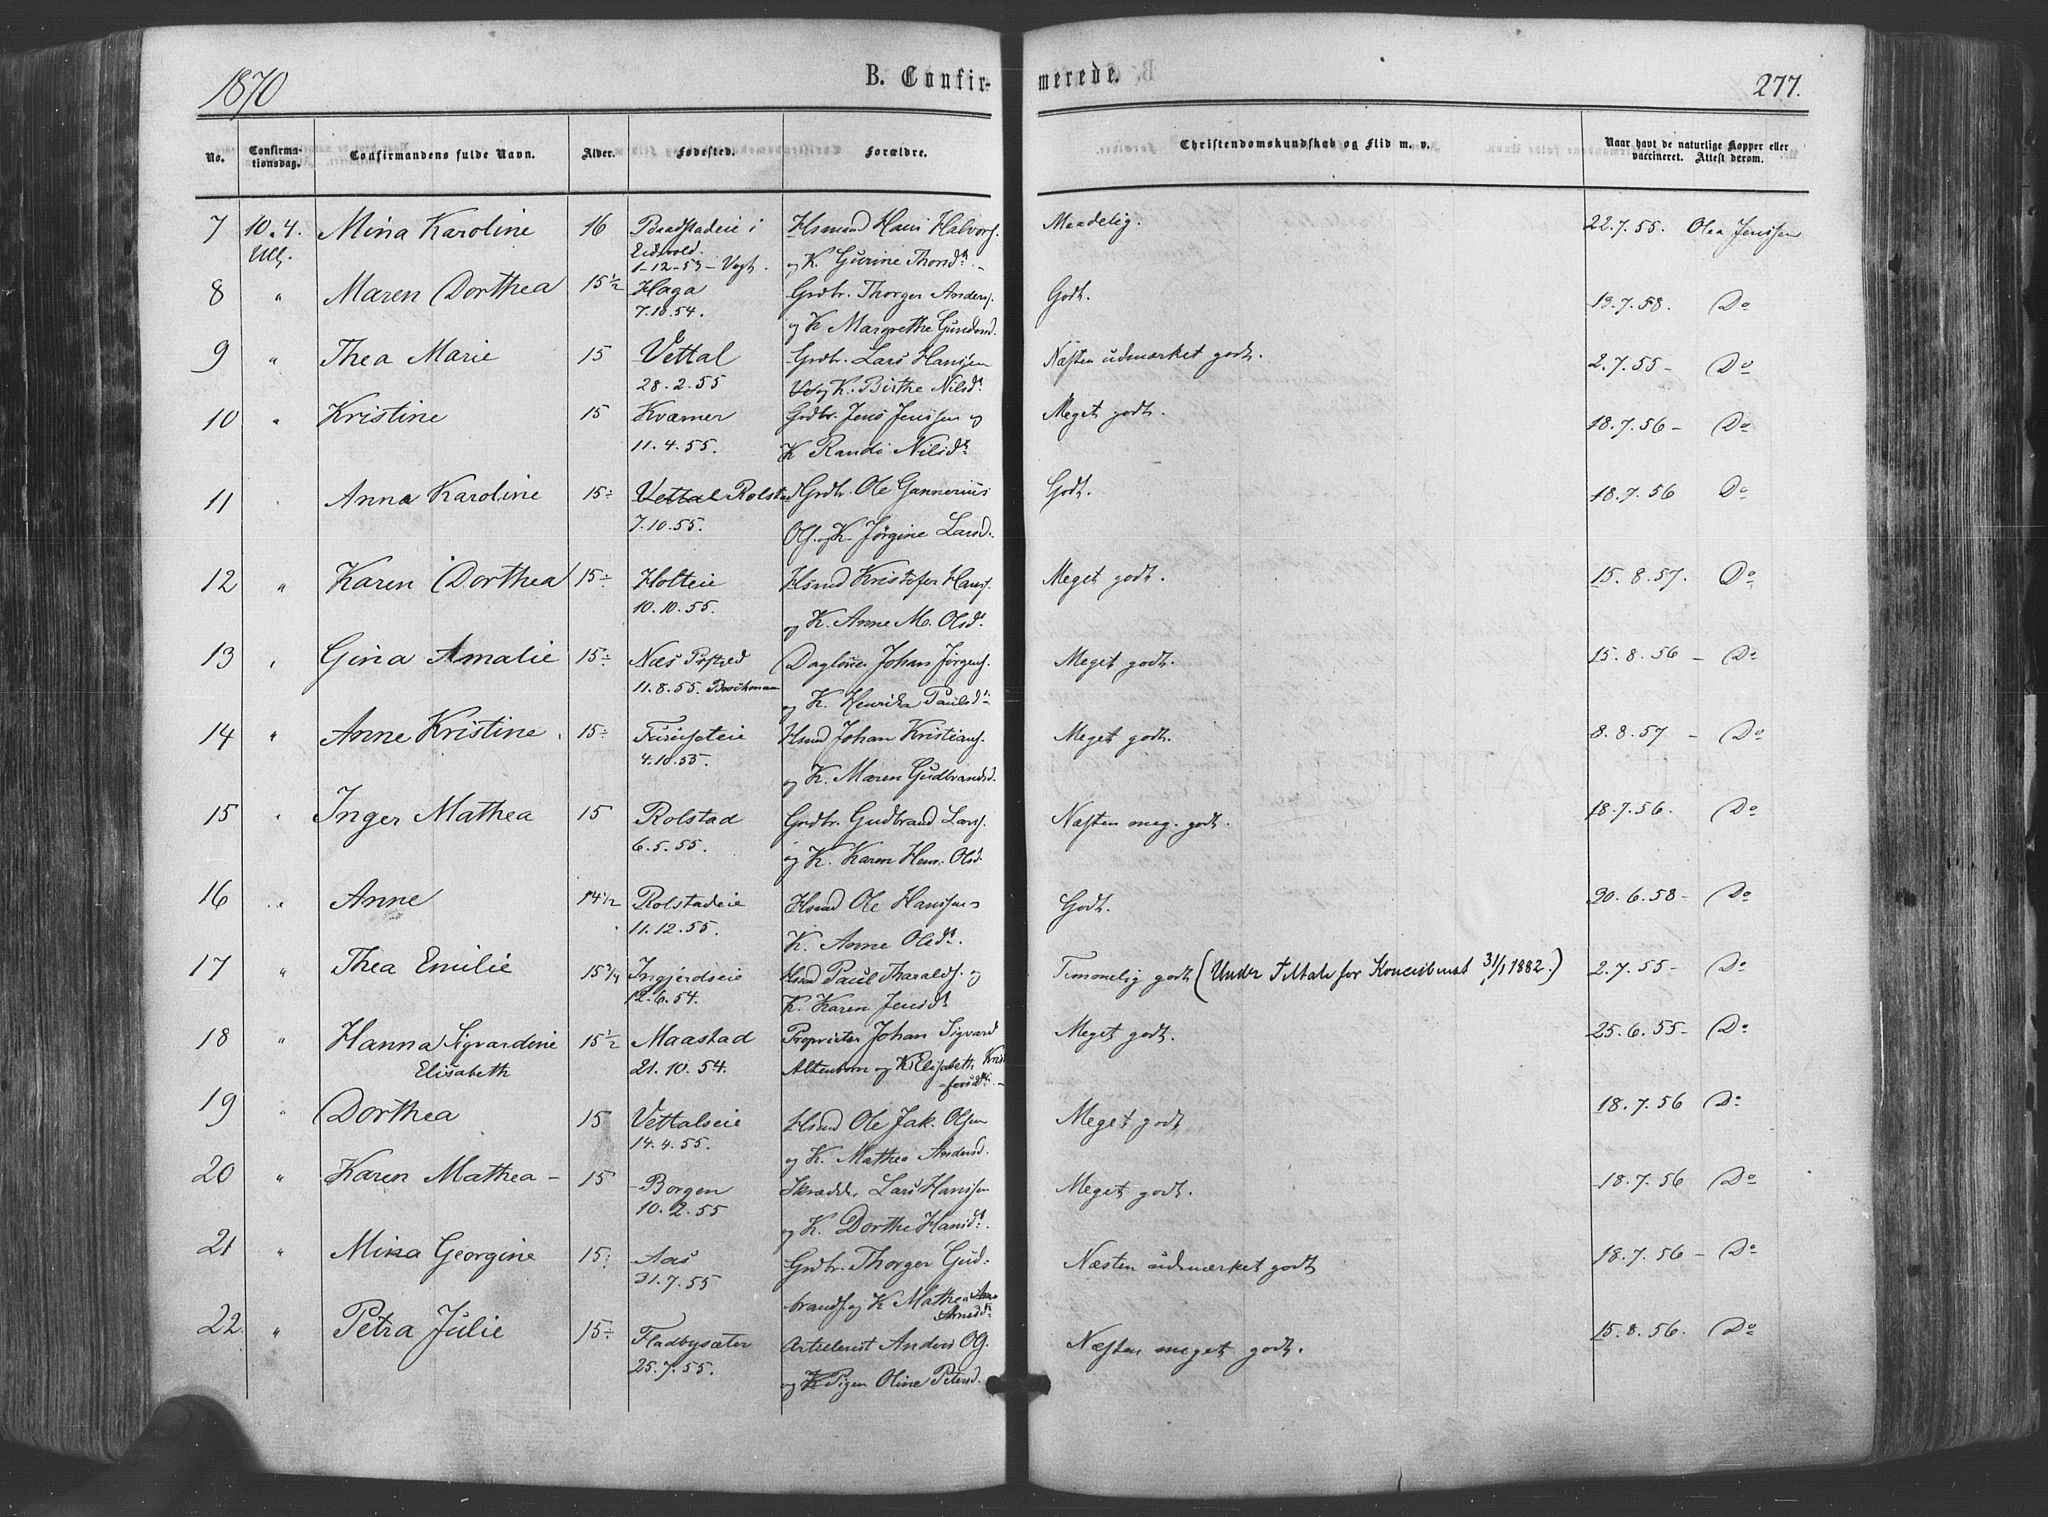 1870
B. Confir-
merede.
277.
No.
Confirma-
tionsdag.
Confirmandens fulde Navn.
Alder.
Fødested.
Forældre.
Christendomskundskab og Flid m. v.
Naar havt de naturlige Kopper eller
vaccineret. Attest derom.
7 10.4. Mina Karoline 16 i Hsmand Hans Halvors. Maadelig. 22.7.55. Olea Jenssen
Ull. Eidsvold.
1-12-53 - Vogt. og K. Gurine Thorsd.
8 " Maren Dorthea 15½ Haga Grdbr. Thorger Anders. Godt. 19.7.58. Do
7.10.54. og K Margrethe Gundersd.
9 " Thea Marie 15 Vettal Grdbr. Lars Hansen Næsten udmærket godt. 2.7.55 - Do
28.2.55 og K. Birthe Nilsdt
10 " Kristine 15 Kværner Grdbr. Jens Jenssen og Meget godt. 18.7.56 - Do
11.4.55. K Randi Nilsdt
11 Anna Karoline 15- Vettal Rolstad Grdbr. Ole Gunnerius Godt. 18.7.56 Do
7.10.55. Ols. og K. Jørgine Larsd.
12 " Karen Dorthea 15- Holteie Hsmd Kristofer Hans. Meget godt. 15.8.57. Do
10.10.55. og K. Anne M. Olsdt
13 " Gina Amalie 15- Næs Præstegj Johan Jørgens. Meget godt. 15.8.56 - Do
11.8.55. og K. Henrika Paulsdt
14 " Anne Kristine 15- Furuseteie Hsmd Johan Kristians. Meget godt. 8.8.57 - Do
4.10.55. og K. Maren Gudbrandsd.
15 " Inger Mathea 15 Rolstad Grdbr. Gudbrand Lars. Næsten meg. godt. 18.7.56. Do
6.5.55. og K. Karen Hen. Olsd.
16 " Anne 14½ Rolstadeie Hsmd Ole Hanssen Godt. 30.6.58 - Do
11.12.55. K. Anne Olsdt.
17 " Thea Emilie 15¾ Ingjerdseie Hsmd Paul Tharalds. og Temmelig godt (Under Tiltale for Konkubinat 31/1 1882.) 2.7.55 - Do
12.6.54. K. Karen Jensdt
18 " Hanna Sigvardine 15½ Maastad Proprietær Johan Sigvard Meget godt. 25.6.55 - Do
Elisabeth 21.10.54. Altenborn og K Elisabeth Krist-
-forsdt.
19 " Dorthea 15 Vettalseie Hsmd Ole Jak. Olsen Meget godt 18.7.56 Do
14.4.55. og K. Mathea Andersd.
20 " Karen Mathea - 15 Borgen Skrædder Lars Hanssen Meget godt. 18.7.56 Do
10.2.55 og K. Dorthe Hansdt.
21 " Mina Georgine 15- Aas Grdbr. Thorger Gud- Næsten udmærket godt 18.7.56 - Do
31.7.55 brands. og K Mathea
Arnesdt
22. " Petra Julie 15- Fladbysæter Artillerist Anders Ols. Næsten meget godt. 15.8.56. Do
25.7.55. og Pigen Oline Petersd.